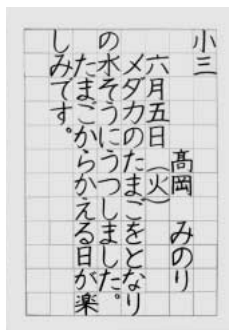 小三
髙岡 みのり
六月五日(火)
メダカのたまごをとなり
の水そうにうつしました。
たまごからかえる日が楽
しみです。